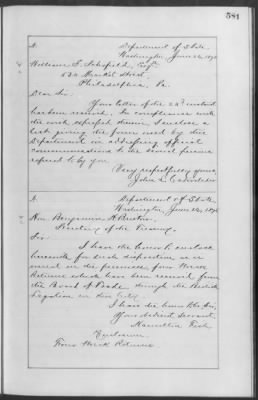 581
Department of State,
Washington, June 24, 187
William F. Schofield, Esqr.
Market Street,
Philadelphia, Pa.
Dear Sir:
Your letter of the 22d instant
has been received. In compliance with
the wish expressed therein, I enclose a
list giving the form used by this
Department in addressing official
communications to the several persons
referred to by you.
Very respectfully yours,
John L. Cadwalader
Department of State,
Washington, June 24, 187
Hon. Benjamin H. Bristow,
Secretary of the Treasury.
Sir:
I have the honor to enclose
herewith for such disposition as is
usual in the premises four Wreck
Returns which have been received from
the Board of Trade through the British
Legation in this City.
I have the honor to be, Sir,
Your obedient servant,
Hamilton Fish
Enclosure:
Four Wreck Returns